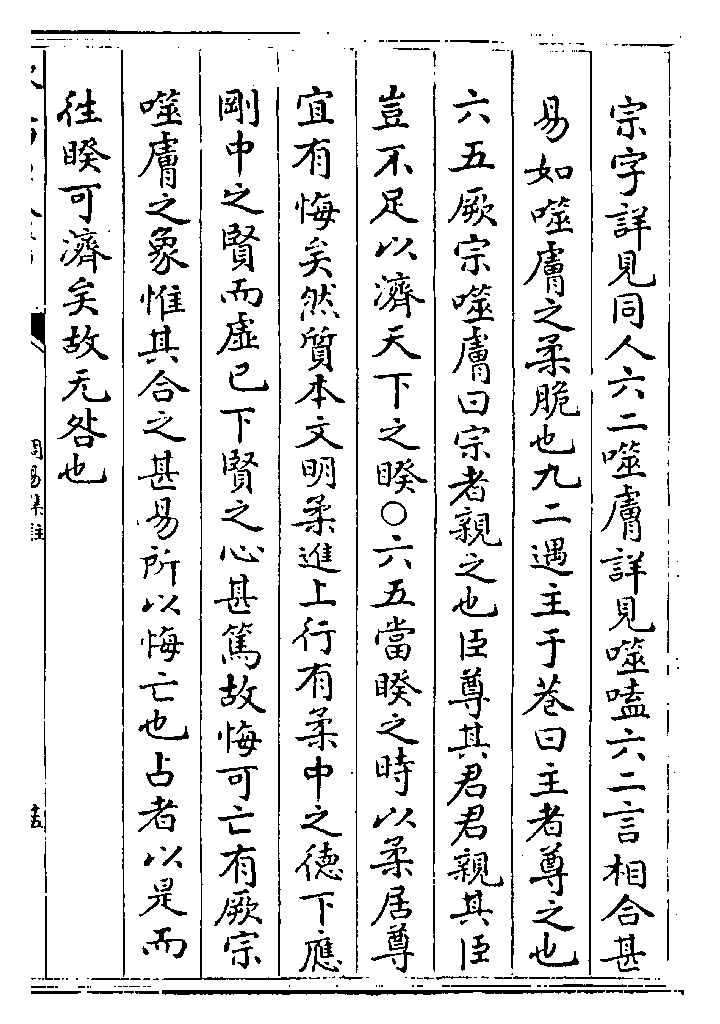 宗字詳見同人六二噬膚詳見噬嗑六二言相合甚
易如噬膚之柔脆也九二遇主于巷曰主者尊之也
六五厥宗噬膚曰宗者親之也臣尊其君君親其臣
豈不足以濟天下之睽○六五當睽之時以柔居尊
宜有悔矣然質本文明柔進上行有柔中之德下應
剛中之賢而虛已下賢之心甚篤故悔可亡有厥宗
噬膚之象惟其合之甚易所以悔亡也占者以是而
徃睽可濟矣故无咎也
周易集註